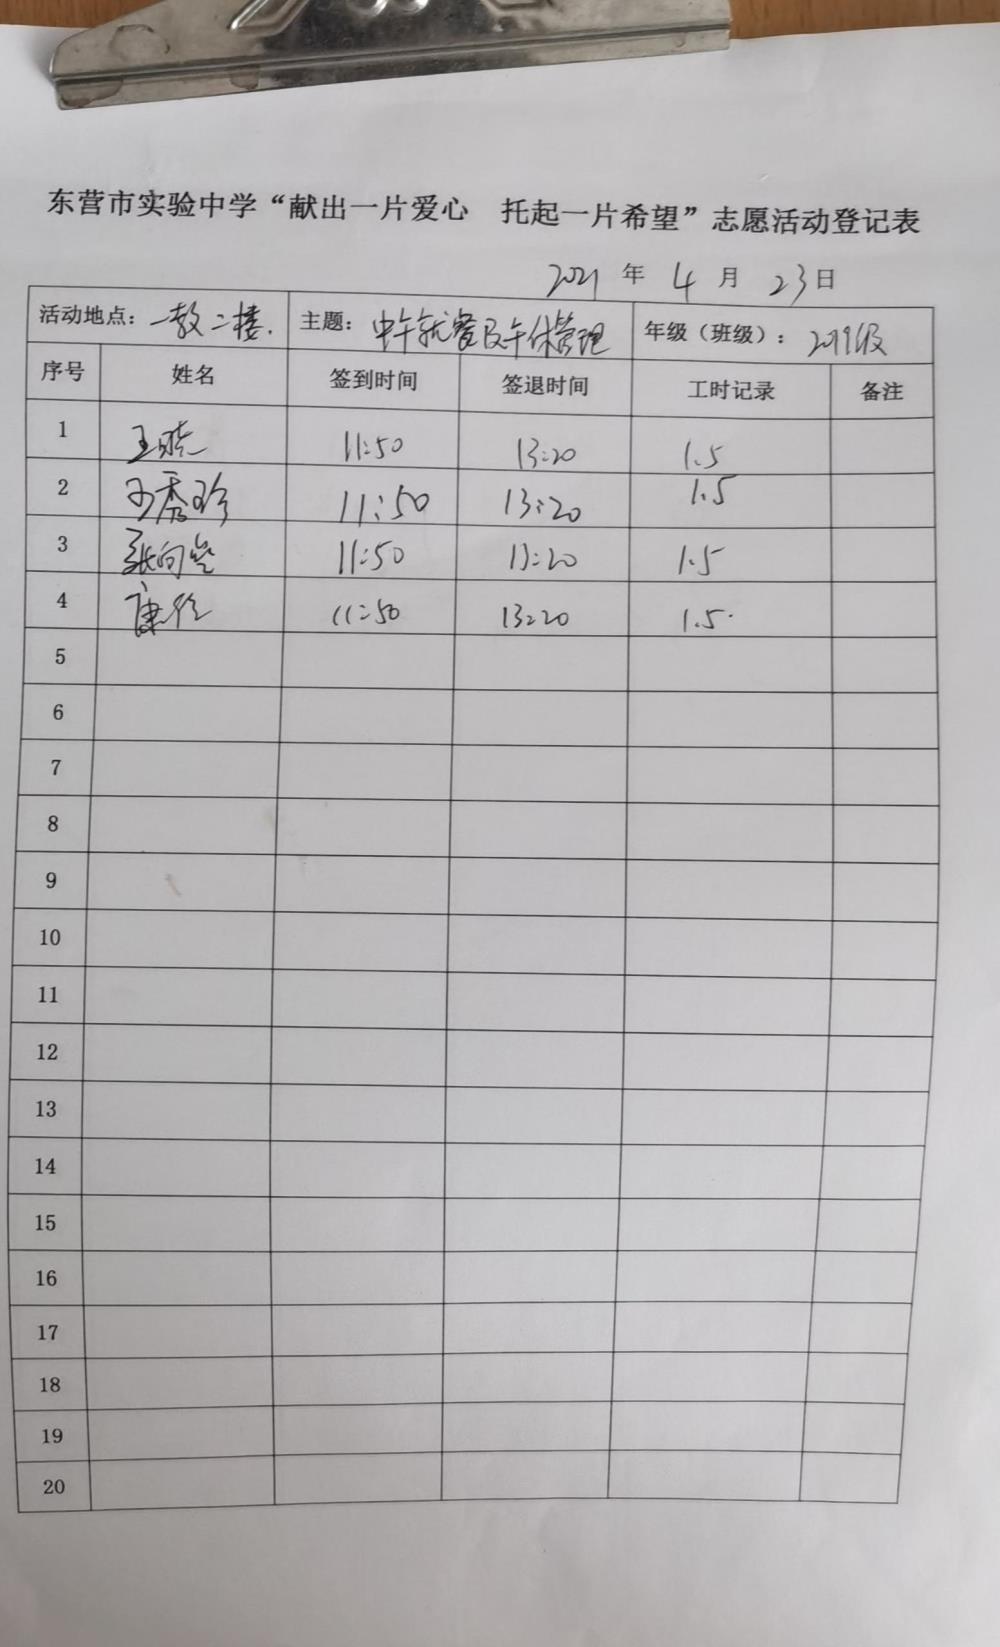 东营市实验中学“献出一片爱心 托起一片希望”志愿活动登记表
2021 年 4 月 23日
活动地点：一教二楼. 主题：中午就餐及午休管理 年级（班级）：2019级
序号 姓名 签到时间 签退时间 工时记录 备注
1 王晓 11:50 13:20 1.5
2 王秀珍 11:50 13:20 1.5
3 张向 11:50 13:20 1.5
4 康 11:50 13:20 1.5
5
6
7
8
9
10
11
12
13
14
15
16
17
18
19
20